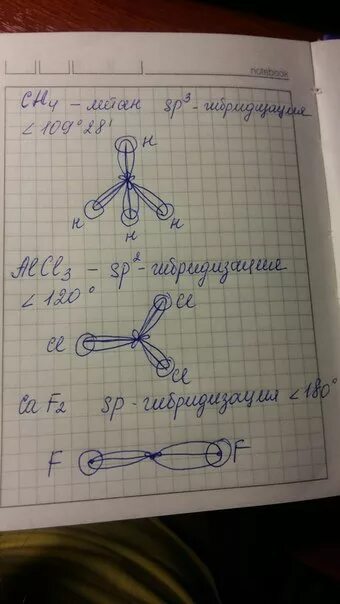 notebook
CH4 - метан sp³-гибридизация
∠109°28'
H
H
H
H
AlCl3 - sp²-гибридизация
∠120°
Cl
Cl
Cl
CaF2 sp-гибридизация ∠180°
F
F